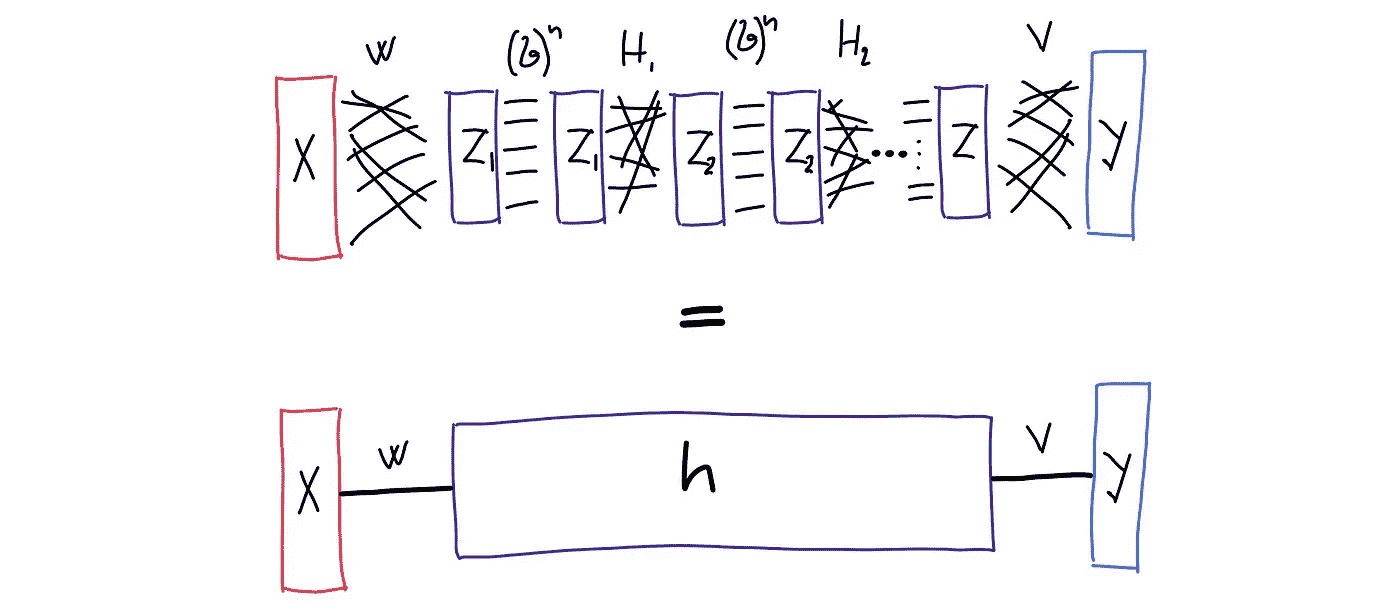 W (σ)ⁿ H₁ (σ)ⁿ H₂ V
X Z₁ Z₁ Z₂ Z₂ ... Z y
=
W V
X h y